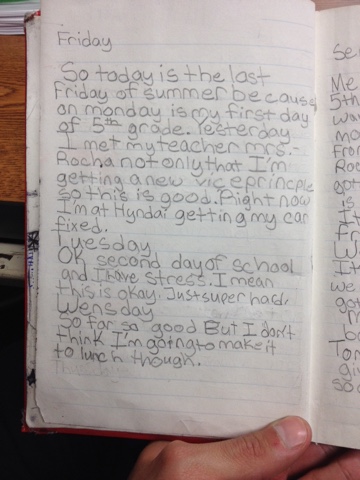 Friday
So today is the last
Friday of summer because
on monday is my first day
of 5th grade. Yesterday
I met my teacher mrs.-
Rocha not only that I'm
getting a new vice principle
so this is good. Right now
I'm at Hyndai getting my car
fixed.
Tuesday
OK second day of school
and I have stress. I mean
this is okay. Just super hard.
Wensday
so far so good But I don't
think I'm going to make it
to lunch though.
Se
Me
5th
wa
mo
Fro
Roc
got
is
It
Fr
W
It
we
go
m
b
Ton
giv
so